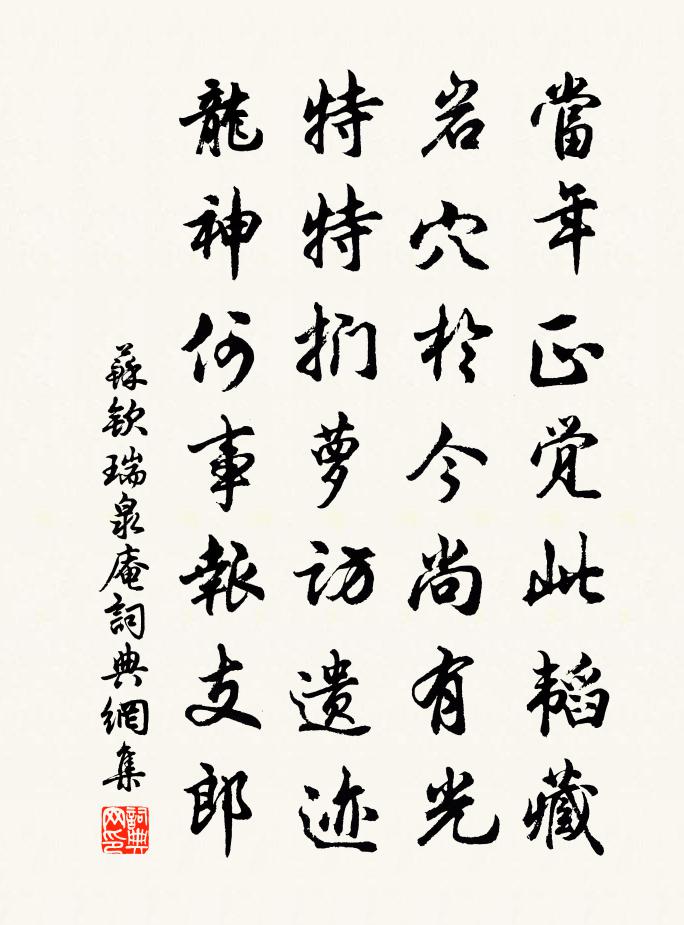 當年正觉此韬藏
岩穴於今尚有光
特特捫萝訪遗迹
龍神何事報支郎
蘇欽瑞泉庵詞典網集
詞典网印